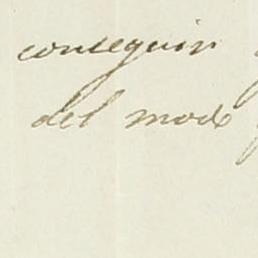 conseguir
del modo